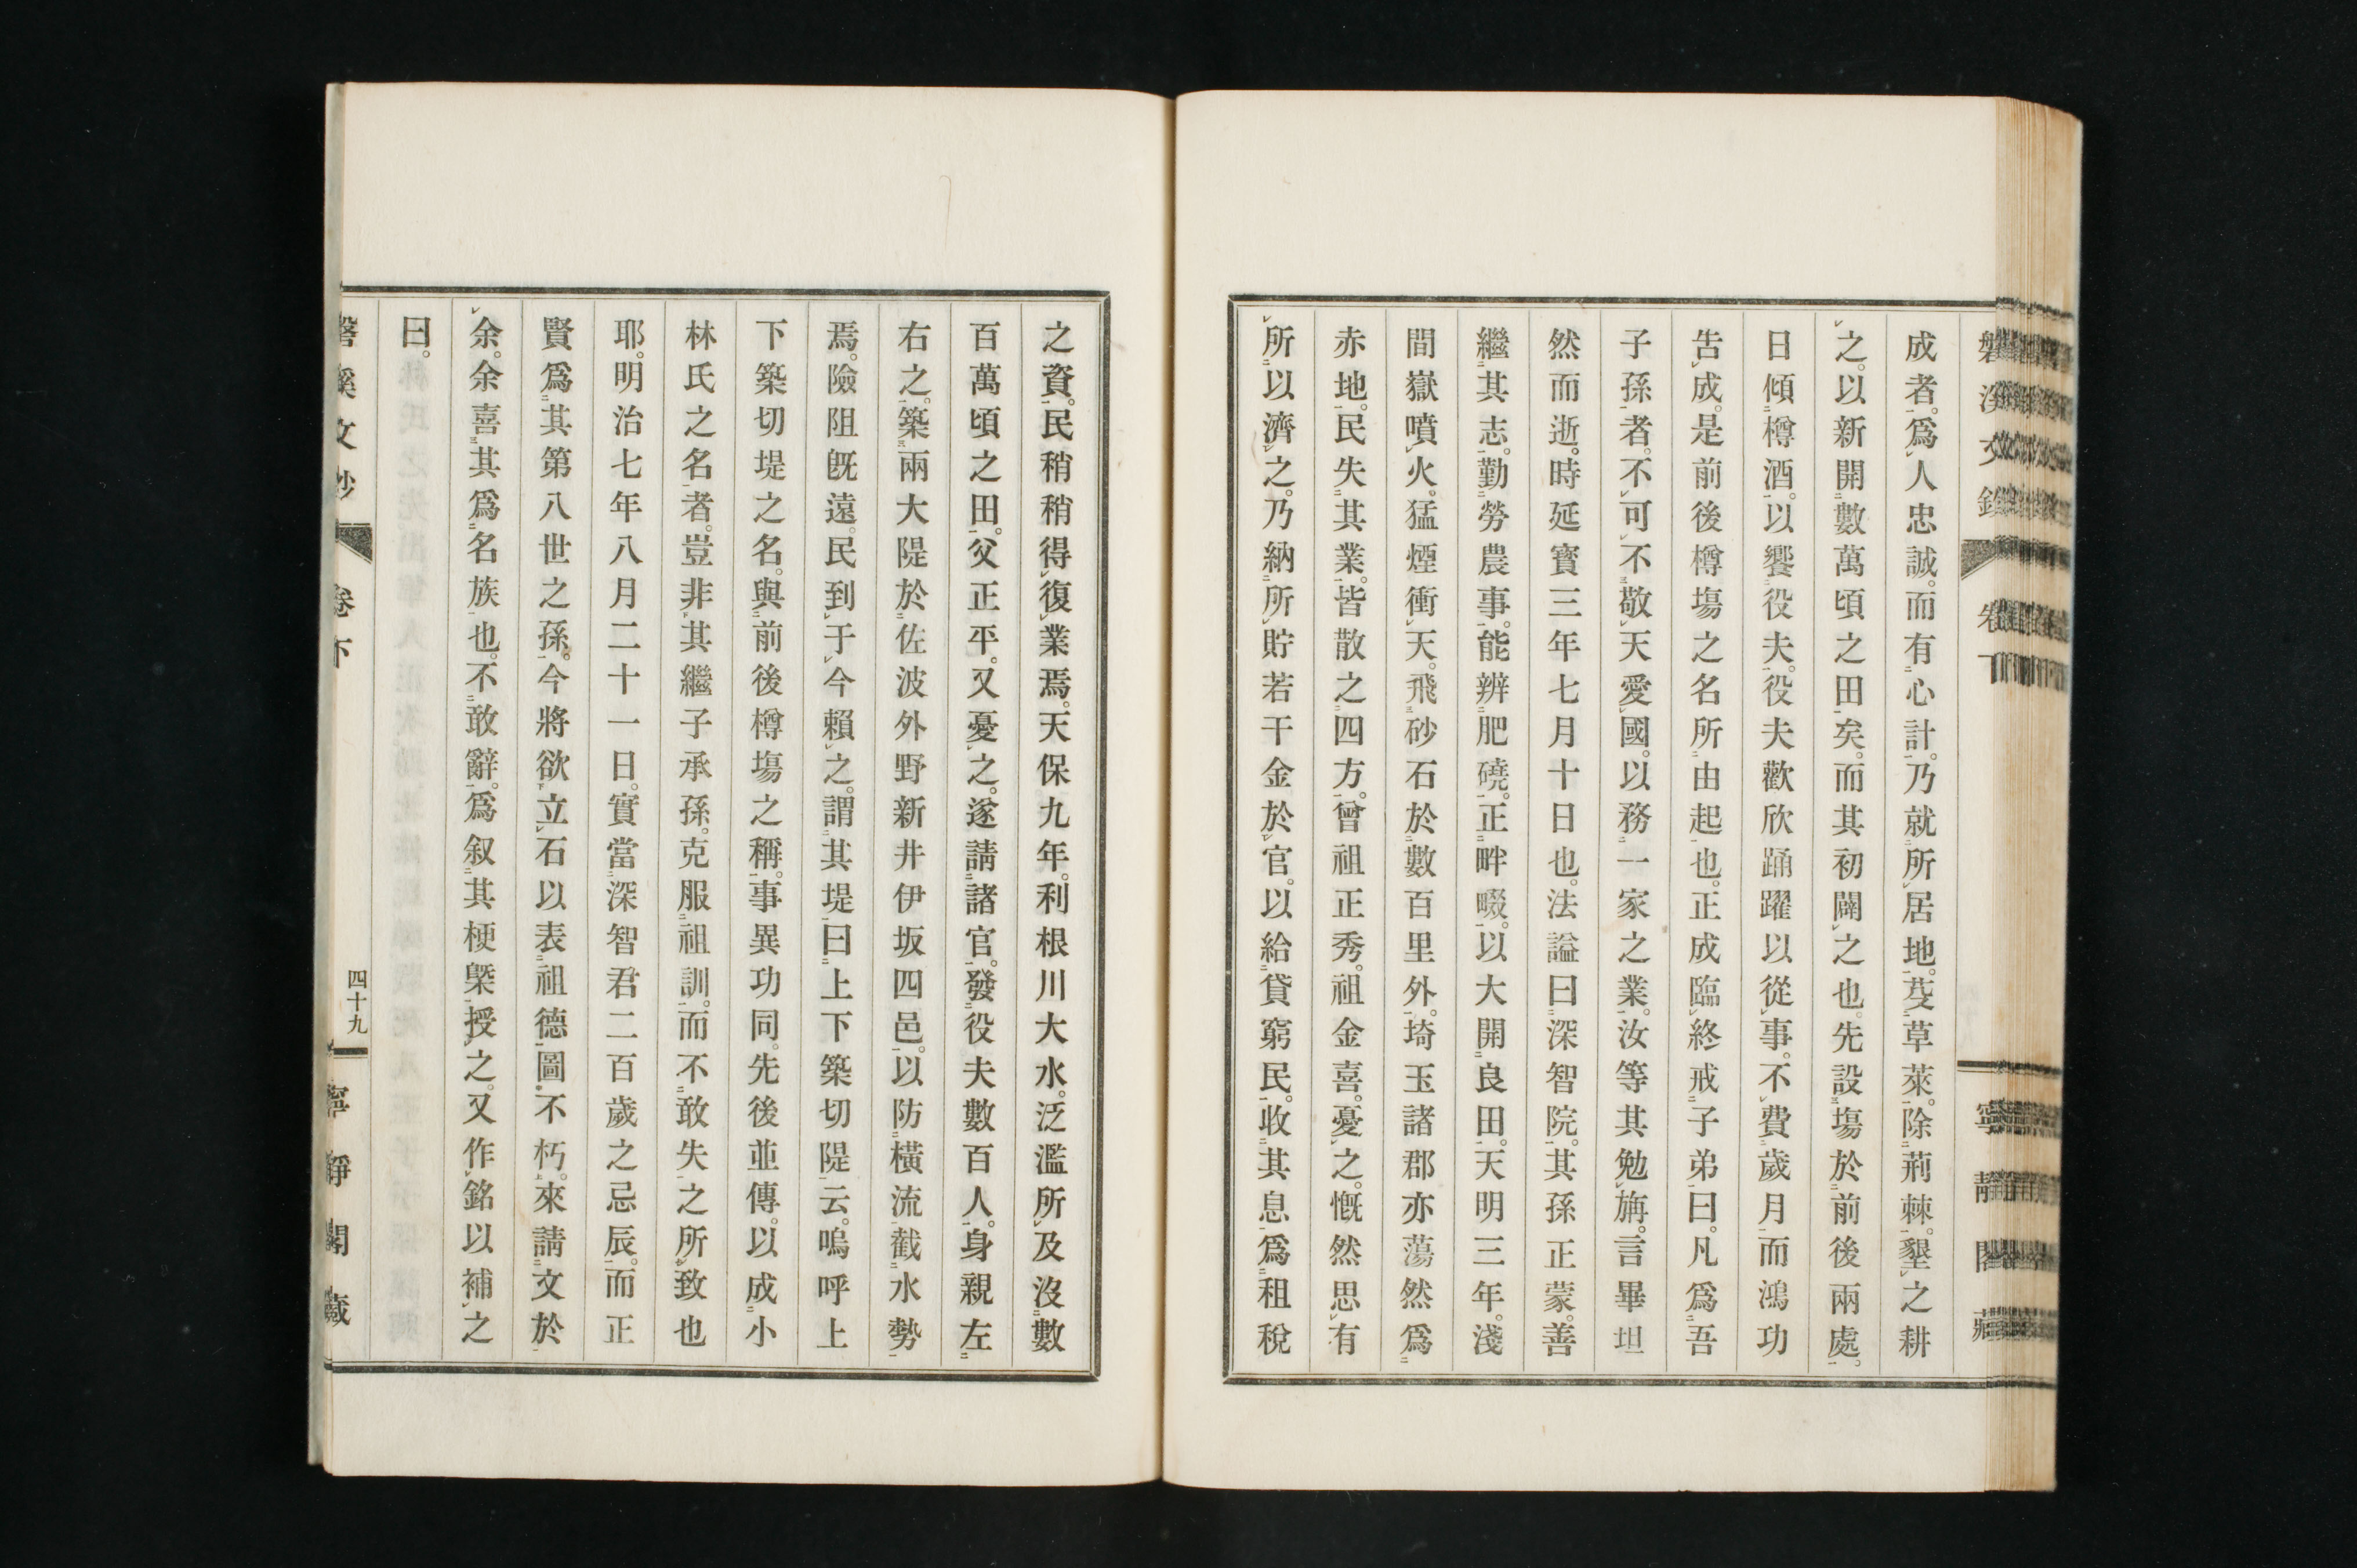 成者。爲人忠誠。而有心計。乃就所居地。芟草萊。除荊棘。墾之耕
之。以新開數萬頃之田矣。而其初闢之也。先設塲於前後兩處。
日傾樽酒。以饗役夫。役夫歡欣踊躍以從事。不費歲月而鴻功
吿成。是前後樽塲之名所由起也。正成臨終戒子弟曰。凡爲吾
子孫者。不可不敬天愛國。以務一家之業。汝等其勉旃。言畢坦
然而逝。時延寳三年七月十日也。法謚曰深智院。其孫正蒙。善
繼其志。勤勞農事。能辨肥磽。正畔畷。以大開良田。天明三年。淺
間嶽噴火。猛煙衝天。飛砂石於數百里外。埼玉諸郡亦蕩然爲
赤地。民失其業。皆散之四方。曾祖正秀。祖金喜。憂之。慨然思有
所以濟之。乃納所貯若干金於官。以給貸窮民。收其息爲租稅
之資。民稍稍得復業焉。天保九年。利根川大水。泛濫所及沒數
百萬頃之田。父正平。又憂之。遂請諸官。發役夫數百人。身親左
右之。築兩大隄於佐波外野新井伊坂四邑。以防橫流截水勢
焉。險阻既遠。民到于今賴之。謂其堤曰上下築切隄云。嗚呼上
下築切堤之名。與前後樽塲之稱。事異功同。先後並傳。以成小
林氏之名者。豈非其繼子承孫。克服祖訓。而不敢失之所致也
耶。明治七年八月二十一日。實當深智君二百歲之忌辰。而正
賢爲其第八世之孫。今將欲立石以表祖德圖不朽。來請文於
余。余喜其爲名族也。不敢辭。爲叙其梗槩授之。又作銘以補之
曰。
文 卷下
四十九